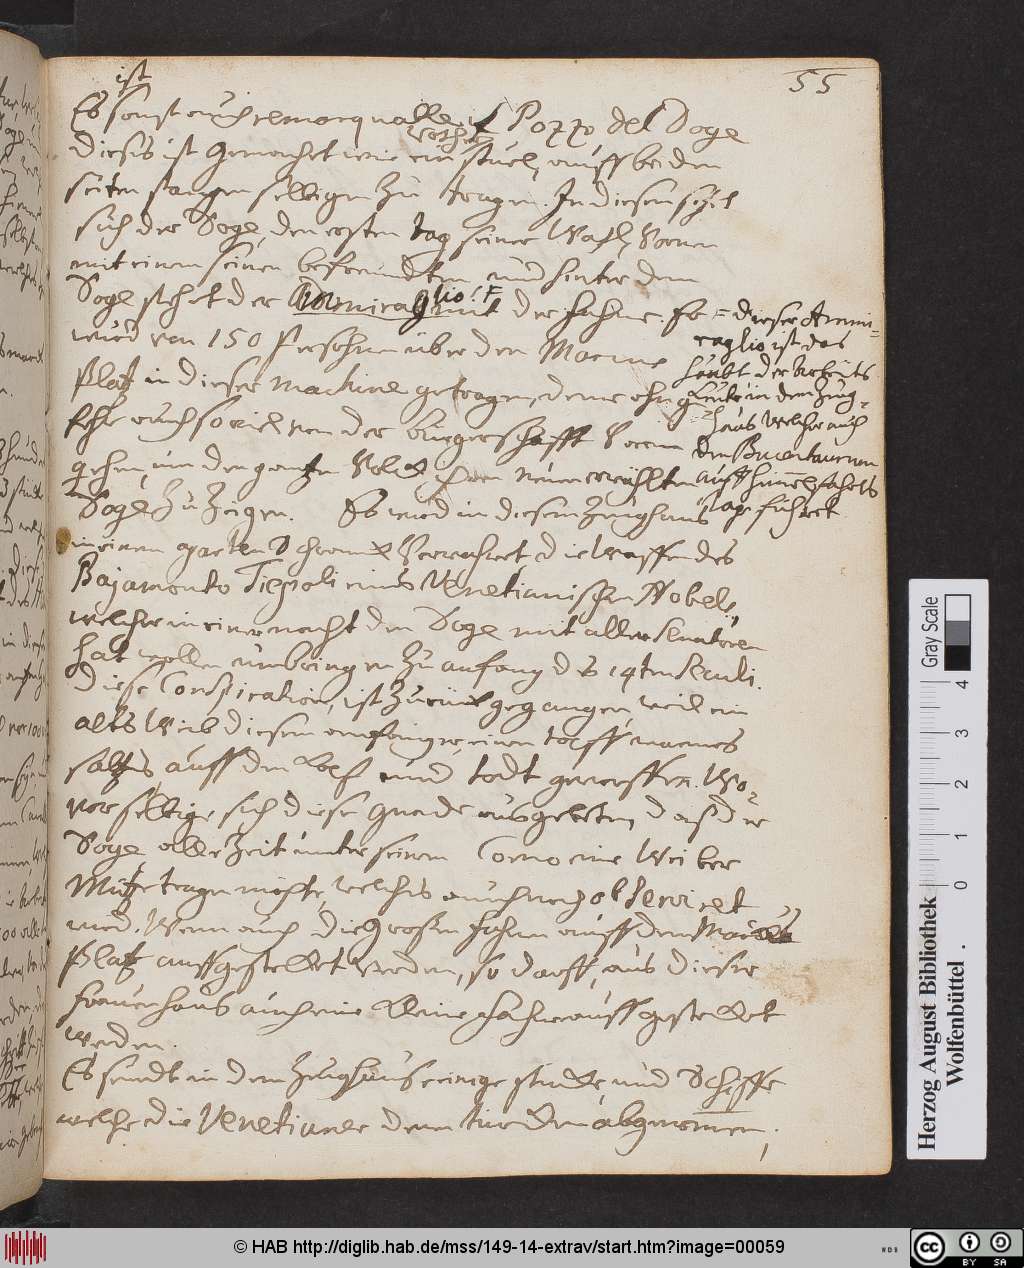 55
ist
Es sonst auch remarquable il Pozzo del Doge
rother
dieses ist gemachet wie ein stuel, auff beiden
seiten stangen selbigen zu tragen. In diesen setzet
sich der Doge, den ersten tag seiner Wahl, Vornen
mit einem seiner befreundten und hinter dem
Doge stehet der Ammiraglio F mit der fahne. Er
wird von 150 Persohnen über den Marcus
Platz in dieser machine getragen, denn ohnge
fehr auch so viel von der bürgerschafft Voran
gehen, um den gantzen Volck den neuerwählten
Doge zu zeigen. Es wird in diesem Zeughaus
in einem aparten Verwahret die Waffen des
Bajamonto Tiepoli eines Venetianischen Nobels,
welcher in einer nacht den Doge mit allen Senatoren
hat wollen umbringen zu anfang des 14ten Seculi.
Diese Conspiration, ist zurück gegangen, weil ein
altes Weib diesem einen topff
saltzes, auff den Kopf und todt geworffen. Wo-
vor selbige sich diese gnade ausgebeten, daß der
Doge alle Zeit unter seinem Corno eine Weiber
Mütze tragen müste, welches auch noch observiret
wird. Wenn auch die Großen fahnen auff dem Marcus
Platz auffgestellet werden, so darff, aus dieser
frauen haus auch eine kleine fahne auffgestellet
werden.
Es sindt in dem Zeughaus einige stücke und Schiffe
welche die Venetianer denen türcken abgenommen,
F = dieser Ammi-
raglio ist das
haubt der Arbeits
Leute in dem Zeug-
haus welcher auch
den Bucentaurum
auff himmelfahrts
tage führet
Gray Scale
4
3
2
1
0
Herzog August Bibliothek
Wolfenbüttel
© HAB http://diglib.hab.de/mss/149-14-extrav/start.htm?image=00059
cc
BY SA